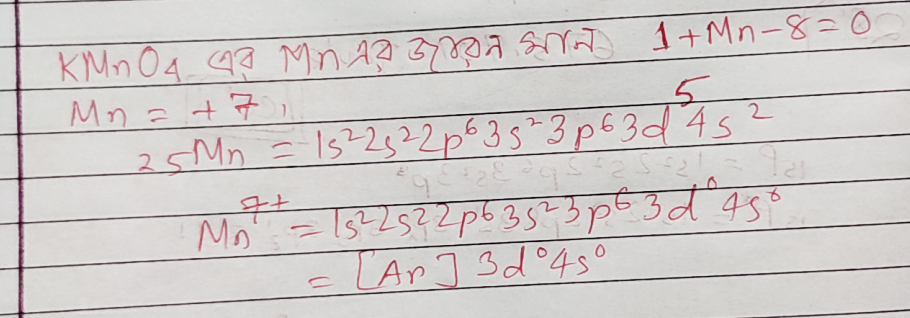 KMnO4 এর Mn এর জারন মান 1+Mn-8=0
Mn = +7,
25Mn = 1s²2s²2p⁶3s²3p⁶3d⁵4s²
Mn⁷⁺ = 1s²2s²2p⁶3s²3p⁶3d⁰4s⁰
= [Ar] 3d⁰4s⁰